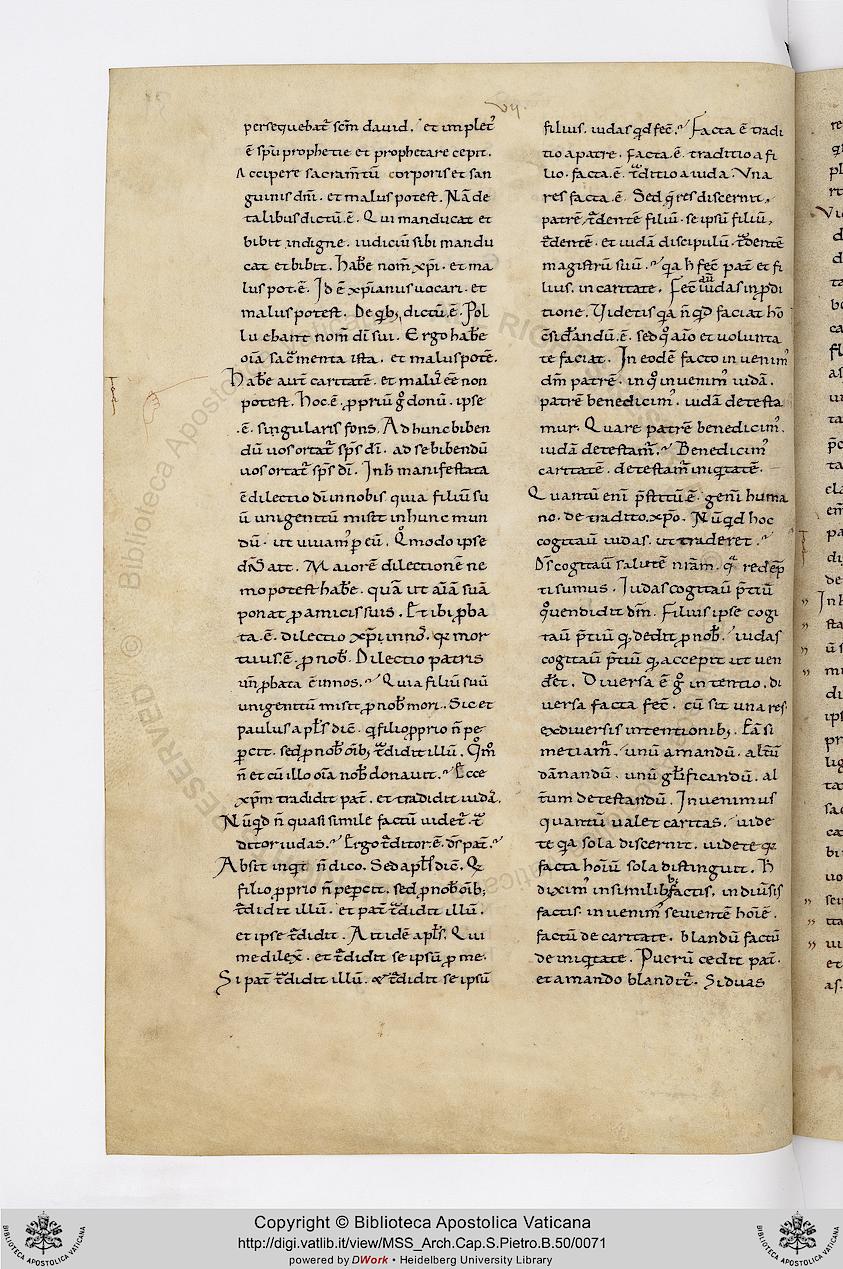 vii.
persequebat᷑ sc̄m dauid. et implet᷑
ē sp̄u prophetie et prophetare cepit.
Accipere sacram̄tū corporis et san
guinis dn̄i. et malus potest. Nā de
talibus dictū.ē. Qui manducat et
bibit indigne. iudiciū sibi mandu
cat et bibit. Hab̄e nom̄ xp̄i. et ma
lus pot.ē. Id ē xp̄ianus uocari. et
malus potest. De qib; dictū.ē. Pol
luebant nom̄ dī sui. Ergo hab̄e
oīa sac̄menta ista. et malus potē.
Hab̄e aut̄ caritatē. et malꝰ eē non
potest. Hoc.ē. ꝓpriū gͦ donū. ipse
.ē. singularis fons. Ad hunc biben
dū uos ortat᷑ sp̄s dī. ad se bibendū
uos ortat᷑ sp̄s dī. In h̄ manifestata
ē dilectio dī in nobis quia filiū su
ū unigenitū misit in hunc mun
dū. ut uiuamꝰ ꝑ eū. Qͦmodo ipse
dn̄s ait. Maiorē dilectionē ne
mo potest hab̄e. quā ut aīā suā
ponat ꝓ amicis suis. Et ibi ꝓba
ta.ē. dilectio xp̄i in noƀ. qa mor
tuus.ē. ꝓ noƀ. Dilectio patris
un̄ ꝓbata ē in nos. Quia filiū suū
unigenitū misit ꝓ noƀ mori. Sic et
paulus apl̄s dic̄. q filio ꝓprio n̄ pe
ꝑcit. sed ꝓ noƀ oīb; t᷑didit illū. Qͦm̄
n̄ et cū illo oīa noƀ donauit. Ecce
xp̄m tradidit pat̄. et tradidit iudā.
Nūqd n̄ quasi simile factū uidet᷑. t᷑
ditor iudas. Ergo t᷑ditor.ē. dš pat̄.
Absit inqt n̄ dico. Sed apl̄s dic̄. Qi
filio ꝓprio n̄ peꝑcit. sed ꝓ noƀ oīb;
t᷑didit illū. et pat̄ t᷑didit illū.
et ipse t᷑didit. Ait idē apl̄s. Qui
me dilex̄. et t᷑didit se ipsū ꝓ me.
Si pat̄ t᷑didit illū. & t᷑didit se ipsū
filius. iudas qd fec̄. Facta ē tradi
tio a patre. facta.ē. traditio a fi
lio. facta.ē. t᷑ditio a iuda. Una
res facta.ē. Sed q̄ res discernit,
patrē t᷑dentē filiū. se ipsū filiū,
t᷑dentē. et iudā discipulū. t᷑dentē
magistrū suū. qa h̄ fec̄ pat̄ et fi
lius. in caritate. Fec̄ aū iudas in ꝓdi
tione. Uidetis qa n̄ qd faciat hō
c̄sid̄andū.ē. sed qͦ aīo et uolunta
te faciat. In eodē facto in uenimꝰ
dm̄ patrē. in qͦ inuenimꝰ iudā.
patrē benedicimꝰ. iudā detesta
mur. Quare patrē benedicimꝰ.
iudā detestam̄. Benedicimꝰ
caritatē. detestam̄ iniqtatē.
Quantū eni p̄stitū.ē. genīi huma
no. de tradito xp̄o. Nūqd hoc
cogitau iudas. ut traderet.
Dš cogitau salutē nr̄am. q redēp
ti sumus. Iudas cogitau p̄tiū
qͦ uendidit dm̄. Filius ipse cogi
tau p̄tiū q dedit ꝓ noƀ. iudas
cogitau p̄tiū q accepit ut uen
d̄et. Diuersa ē gͦ intentio. di
uersa facta fec̄. cū sit una res.
ex diuersis intentionib; Eā si
metiam̄. unū amandū. alt̄ū
dānandū. unū gl̄ificandū. al
t̄um detestandū. Inuenimus
quantū ualet caritas. uide
te qa sola discernit. uidete qa
facta hoīū sola distinguit. H̄
diximꝰ in similib; factis. in diūsis
factis. in uenimꝰ seuientē hoīē.
factū de caritate. blandū factū
de iniqtate. Puerū cedit pat̄.
et amando blandit᷑. Si duas
Copyright © Biblioteca Apostolica Vaticana
http://digi.vatlib.it/view/MSS_Arch.Cap.S.Pietro.B.50/0071
powered by DWork • Heidelberg University Library